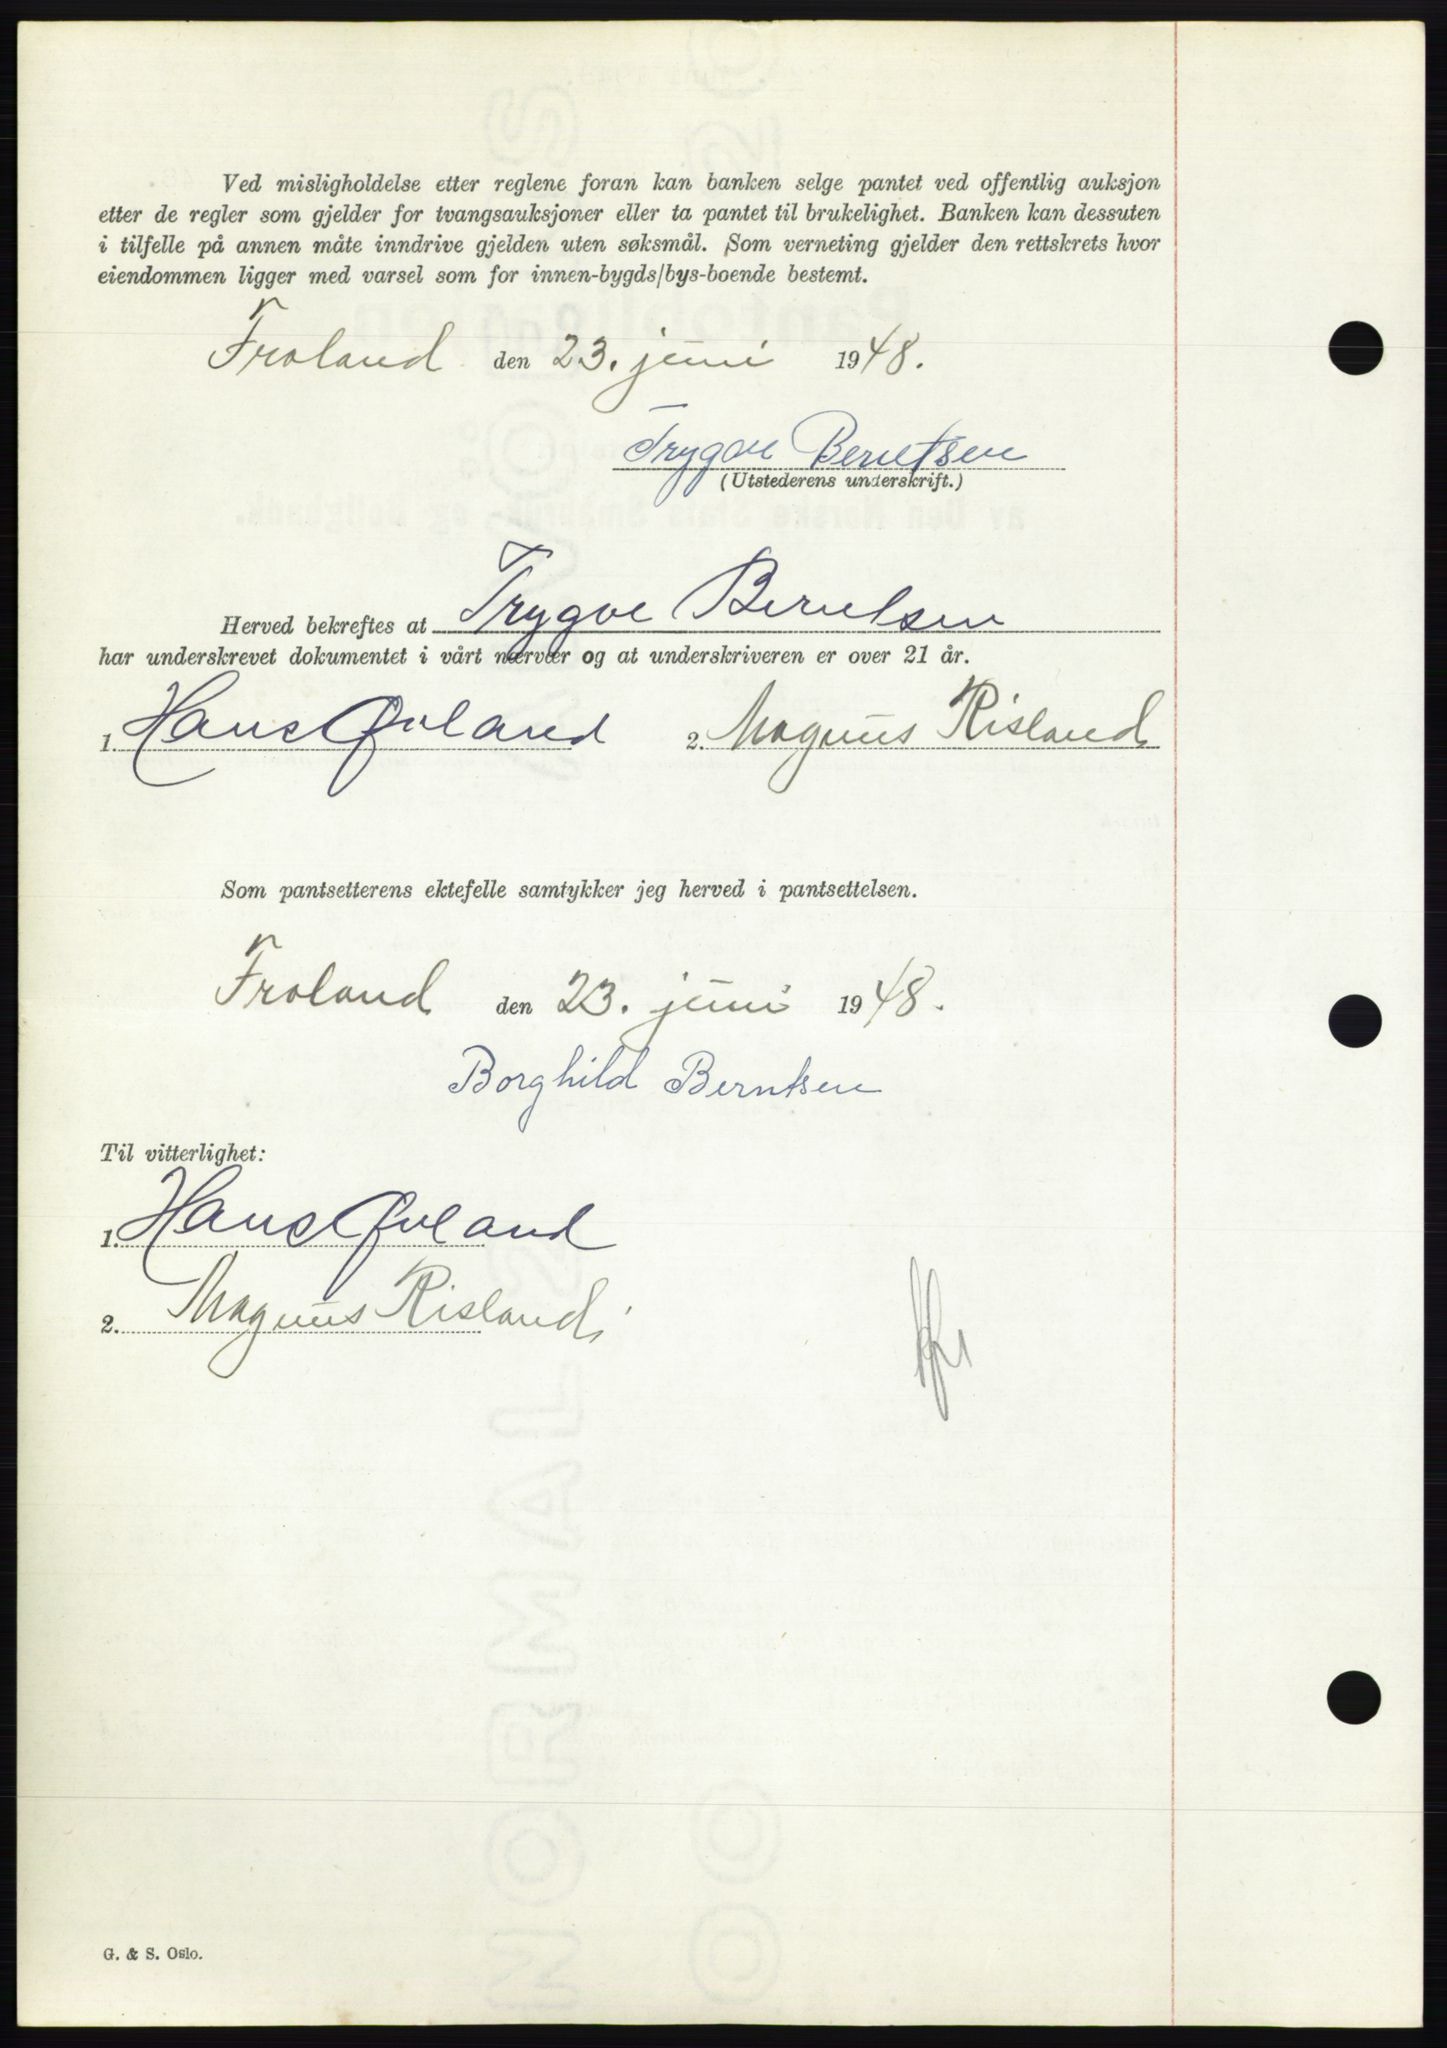 Ved misligholdelse etter reglene foran kan banken selge pantet ved offentlig auksjon
etter de regler som gjelder for tvangsauksjoner eller ta pantet til brukelighet. Banken kan dessuten
i tilfelle på annen måte inndrive gjelden uten søksmål. Som verneting gjelder den rettskrets hvor
eiendommen ligger med varsel som for innen-bygds/bys-boende bestemt.
Froland den 23. juni 1948.
Trygve Berntsen
(Utstederens underskrift.)
Herved bekreftes at Trygve Berntsen
har underskrevet dokumentet i vårt nærvær og at underskriveren er over 21 år.
1. Hans Øvland 2. Magnus Risland
Som pantsetterens ektefelle samtykker jeg herved i pantsettelsen.
Froland den 23. juni 1948.
Borghild Berntsen
Til vitterlighet:
1. Hans Øvland
2. Magnus Risland
G. & S. Oslo.